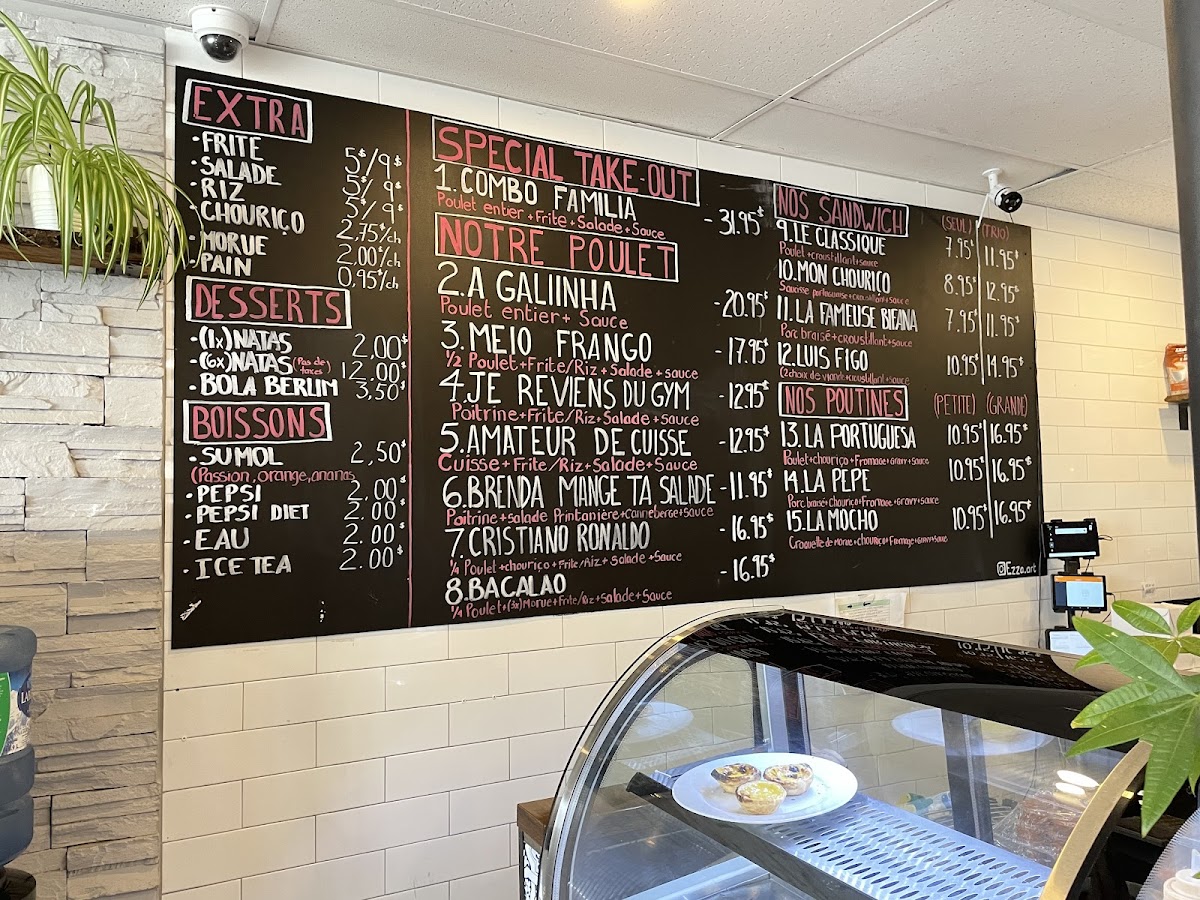 EXTRA
• FRITE 5$/9$
• SALADE 5$/9$
• RIZ 5$/9$
• CHOURIÇO 2,75$/ch
• MORUE 2,00$/ch
• PAIN 0,95$/ch
DESSERTS
• (1x) NATAS 2,00$
• (6x) NATAS (Pas de taxes) 12,00$
• BOLA BERLIM 3,50$
BOISSONS
• SUMOL 2,50$
(Passion, orange, ananas)
• PEPSI 2.00$
• PEPSI DIET 2.00$
• EAU 2.00$
• ICE TEA 2.00$
SPECIAL TAKE-OUT
1. COMBO FAMILIA - 31.95$
Poulet entier + Frite + Salade + Sauce
NOTRE POULET
2. A GALIINHA - 20.95$
Poulet entier + Sauce
3. MEIO FRANGO - 17.95$
1/2 Poulet + Frite/Riz + Salade + sauce
4. JE REVIENS DU GYM - 12.95$
Poitrine + Frite/Riz + Salade + Sauce
5. AMATEUR DE CUISSE - 12.95$
Cuisse + Frite/Riz + Salade + Sauce
6. BRENDA MANGE TA SALADE - 11.95$
Poitrine + salade Printanière + Canneberge + sauce
7. CRISTIANO RONALDO - 16.95$
1/4 Poulet + chouriço + Frite/Riz + Salade + Sauce
8. BACALAO - 16.95$
1/4 Poulet + (3x) Morue + Frite/Riz + Salade + Sauce
NOS SANDWICH (SEUL) (TRIO)
9. LE CLASSIQUE 7.95$ 11.95$
Poulet + croustillant + sauce
10. MON CHOURIÇO 8.95$ 12.95$
Saucisse portugaise + croustillant + sauce
11. LA FAMEUSE BIFANA 7.95$ 11.95$
Porc braisé + croustillant + sauce
12. LUIS FIGO 10.95$ 14.95$
(2 choix de viande + croustillant + sauce
NOS POUTINES (PETITE) (GRANDE)
13. LA PORTUGUESA 10.95$ 16.95$
Poulet + chouriço + Fromage + Gravy + sauce
14. LA PEPE 10.95$ 16.95$
Porc braisé + chouriço + Fromage + gravy + sauce
15. LA MOCHO 10.95$ 16.95$
Croquette de morue + chouriço + Fromage + Gravy + sauce
Ezza.art